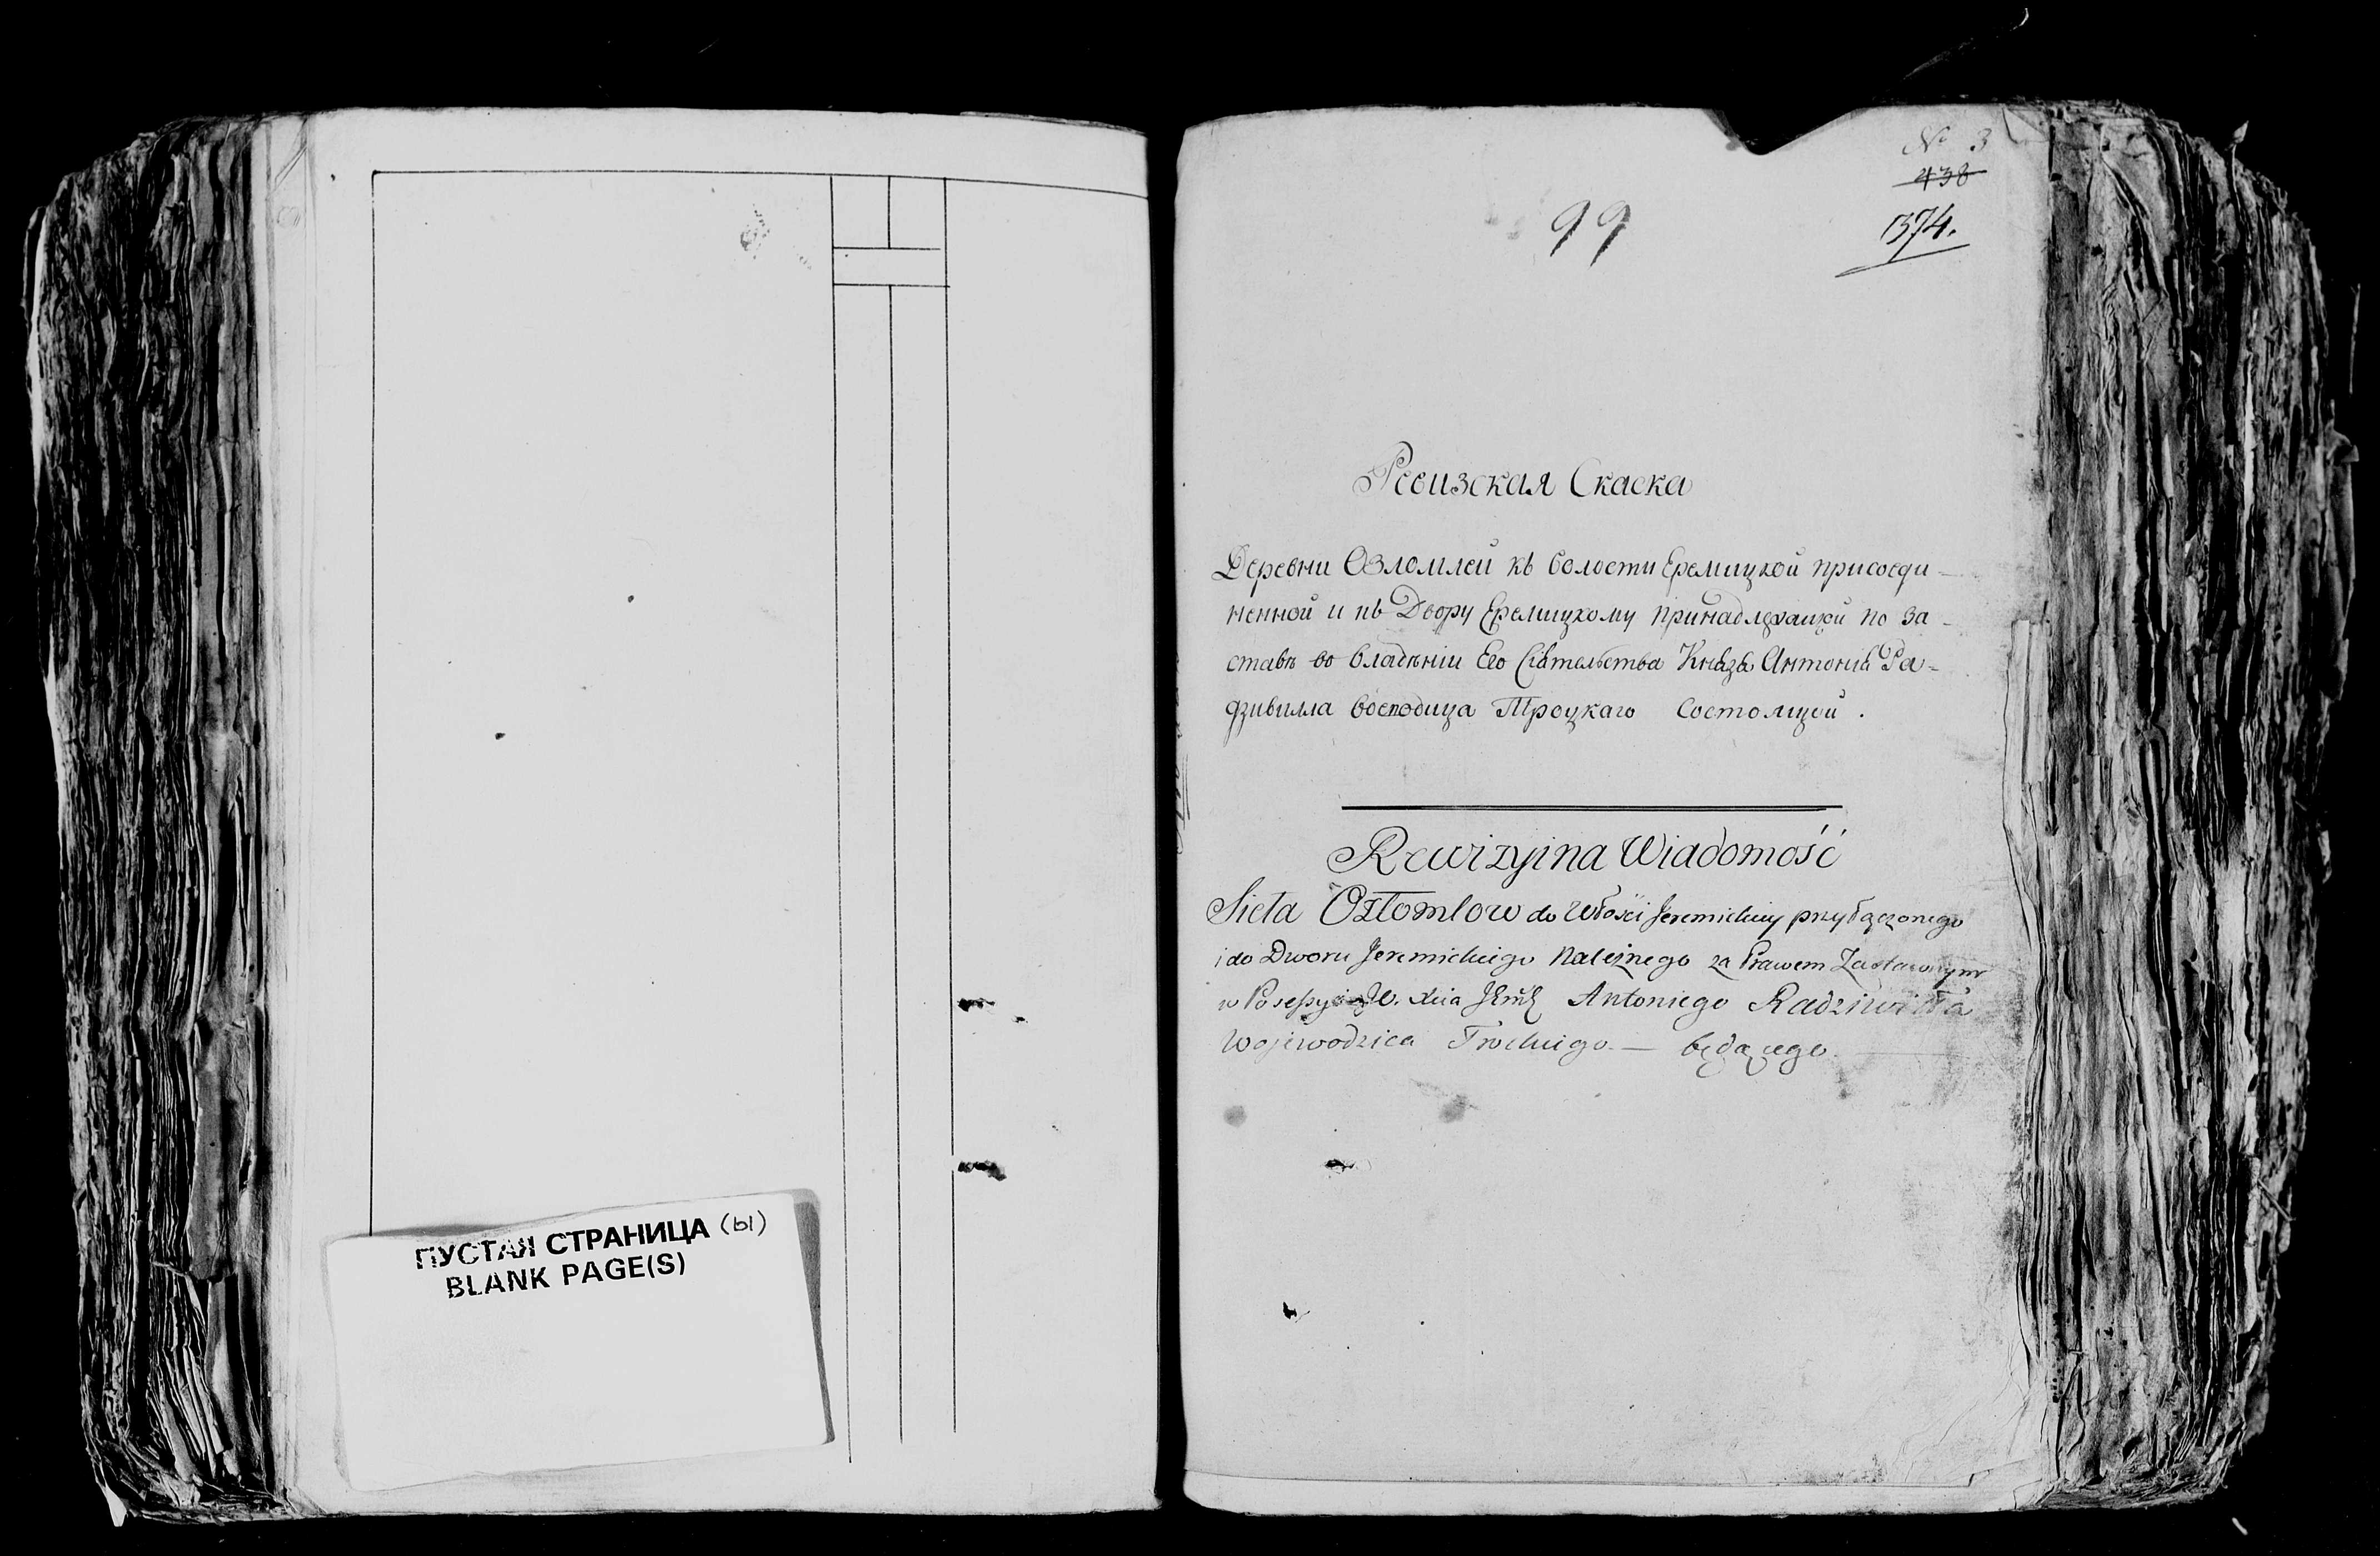 ПУСТАЯ СТРАНИЦА (ы)
BLANK PAGE(S)
№ 3
438
1374.
99
Ревизская Скаска
Деревни Озломлей къ волости Еремицкой присоеди-
ненной и къ Двору Еремицкому принадлежащей по за-
ставѣ во владѣніи Его Сіятельства Князя Антонія Ра-
дзивилла воеводица Троцкаго Состоящей.
Rewizyina Wiadomość
Sioła Ozłomlow do Włości Jeremickiey przyłączonego
i do Dworu Jeremickiego Należnego za Prawem Zastawnym
w Possessyi Antoniego Radziwiłła
Wojewodzica Trockiego — będącego